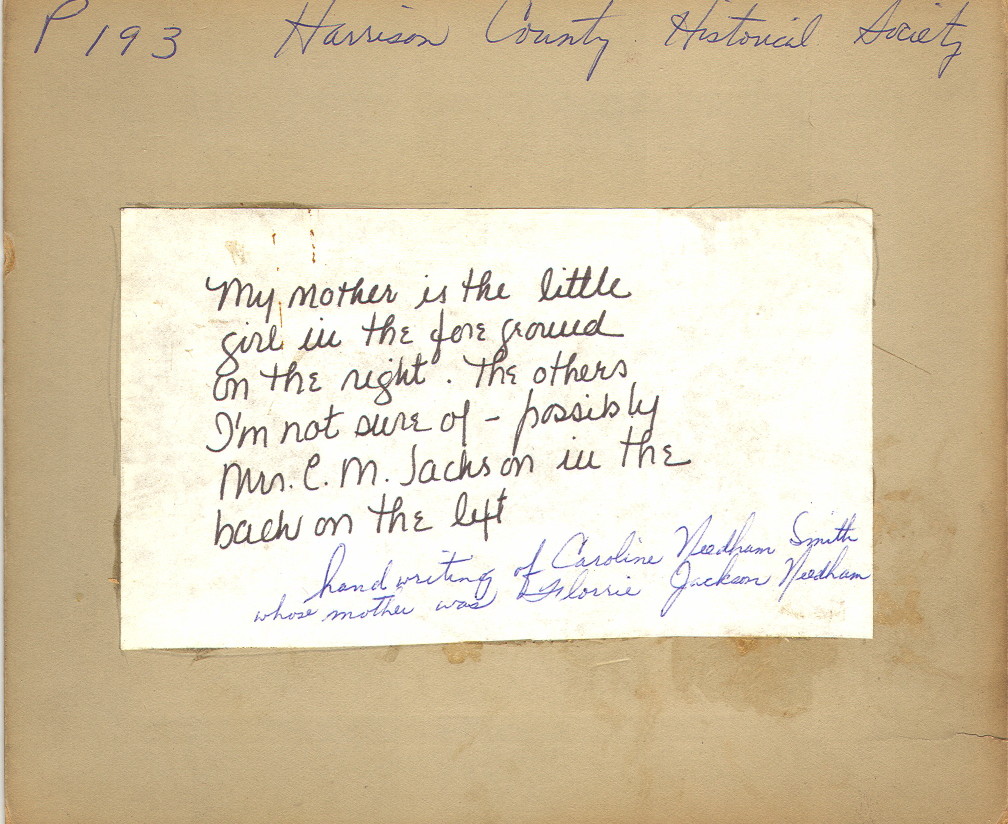 P 193 Harrison County Historical Society
My mother is the little
girl in the foreground
on the right. The others
I'm not sure of - possibly
Mrs. C. M. Jackson in the
back on the left
handwriting of Caroline Needham Smith
whose mother was Florrie Jackson Needham